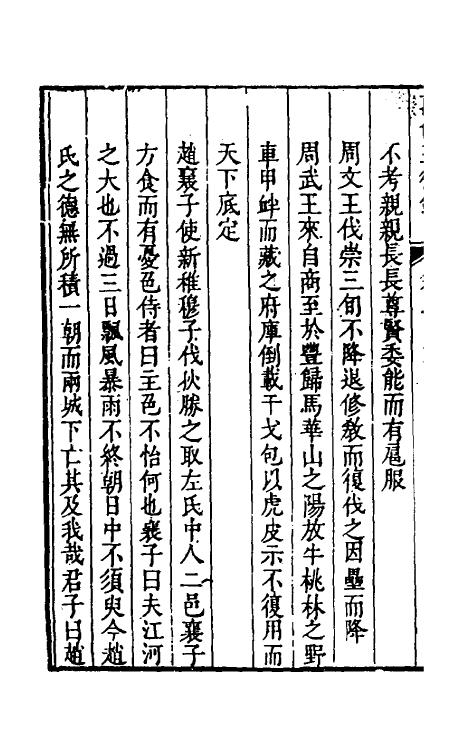 不考親親長長尊賢委能而有扈服
周文王伐崇三旬不降退修敎而復伐之因壘而降
周武王來自商至於豐歸馬華山之陽放牛桃林之野
車甲衅而藏之府庫倒載干戈包以虎皮示不復用而
天下底定
趙襄子使新稚穆子伐狄勝之取左氏中人二邑襄子
方食而有憂色侍者曰主色不怡何也襄子曰夫江河
之大也不過三日飄風暴雨不終朝日中不須臾今趙
氏之德無所積一朝而兩城下亡其及我哉君子曰趙